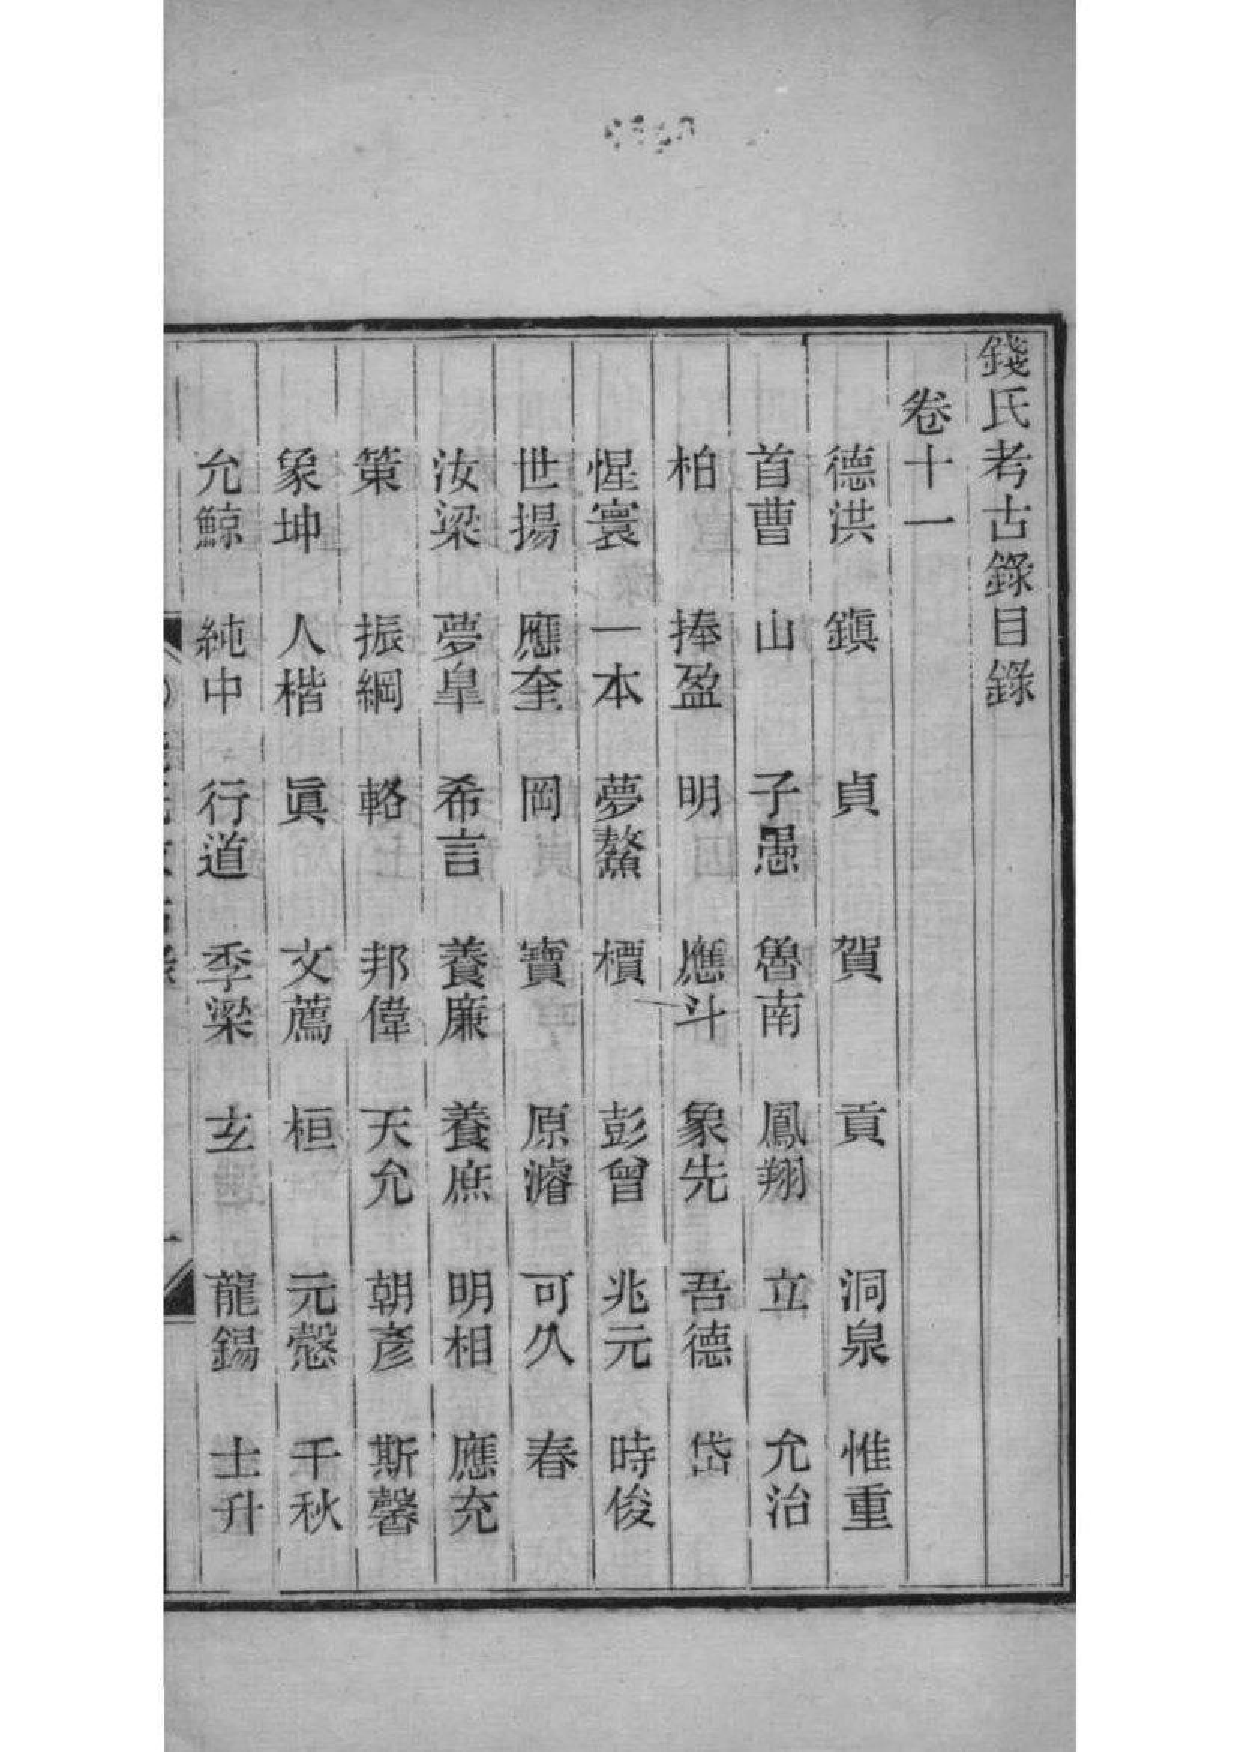 錢氏考古錄目錄
卷十一
德洪 鎭 貞 賀 貢 洞泉 惟重
首曹 山 子愚 魯南 鳳翔 立 允治
柏 捧盈 明 應斗 象先 吾德 岱
惺寰 一本 夢鰲 檟 彭曾 兆元 時俊
世揚 應奎 岡 寶 原濬 可久 春
汝梁 夢皐 希言 養廉 養庶 明相 應充
策 振綱 輅 邦偉 天允 朝彥 斯馨
象坤 人楷 眞 文薦 桓 元慤 千秋
允鯨 純中 行道 季梁 玄 龍錫 士升